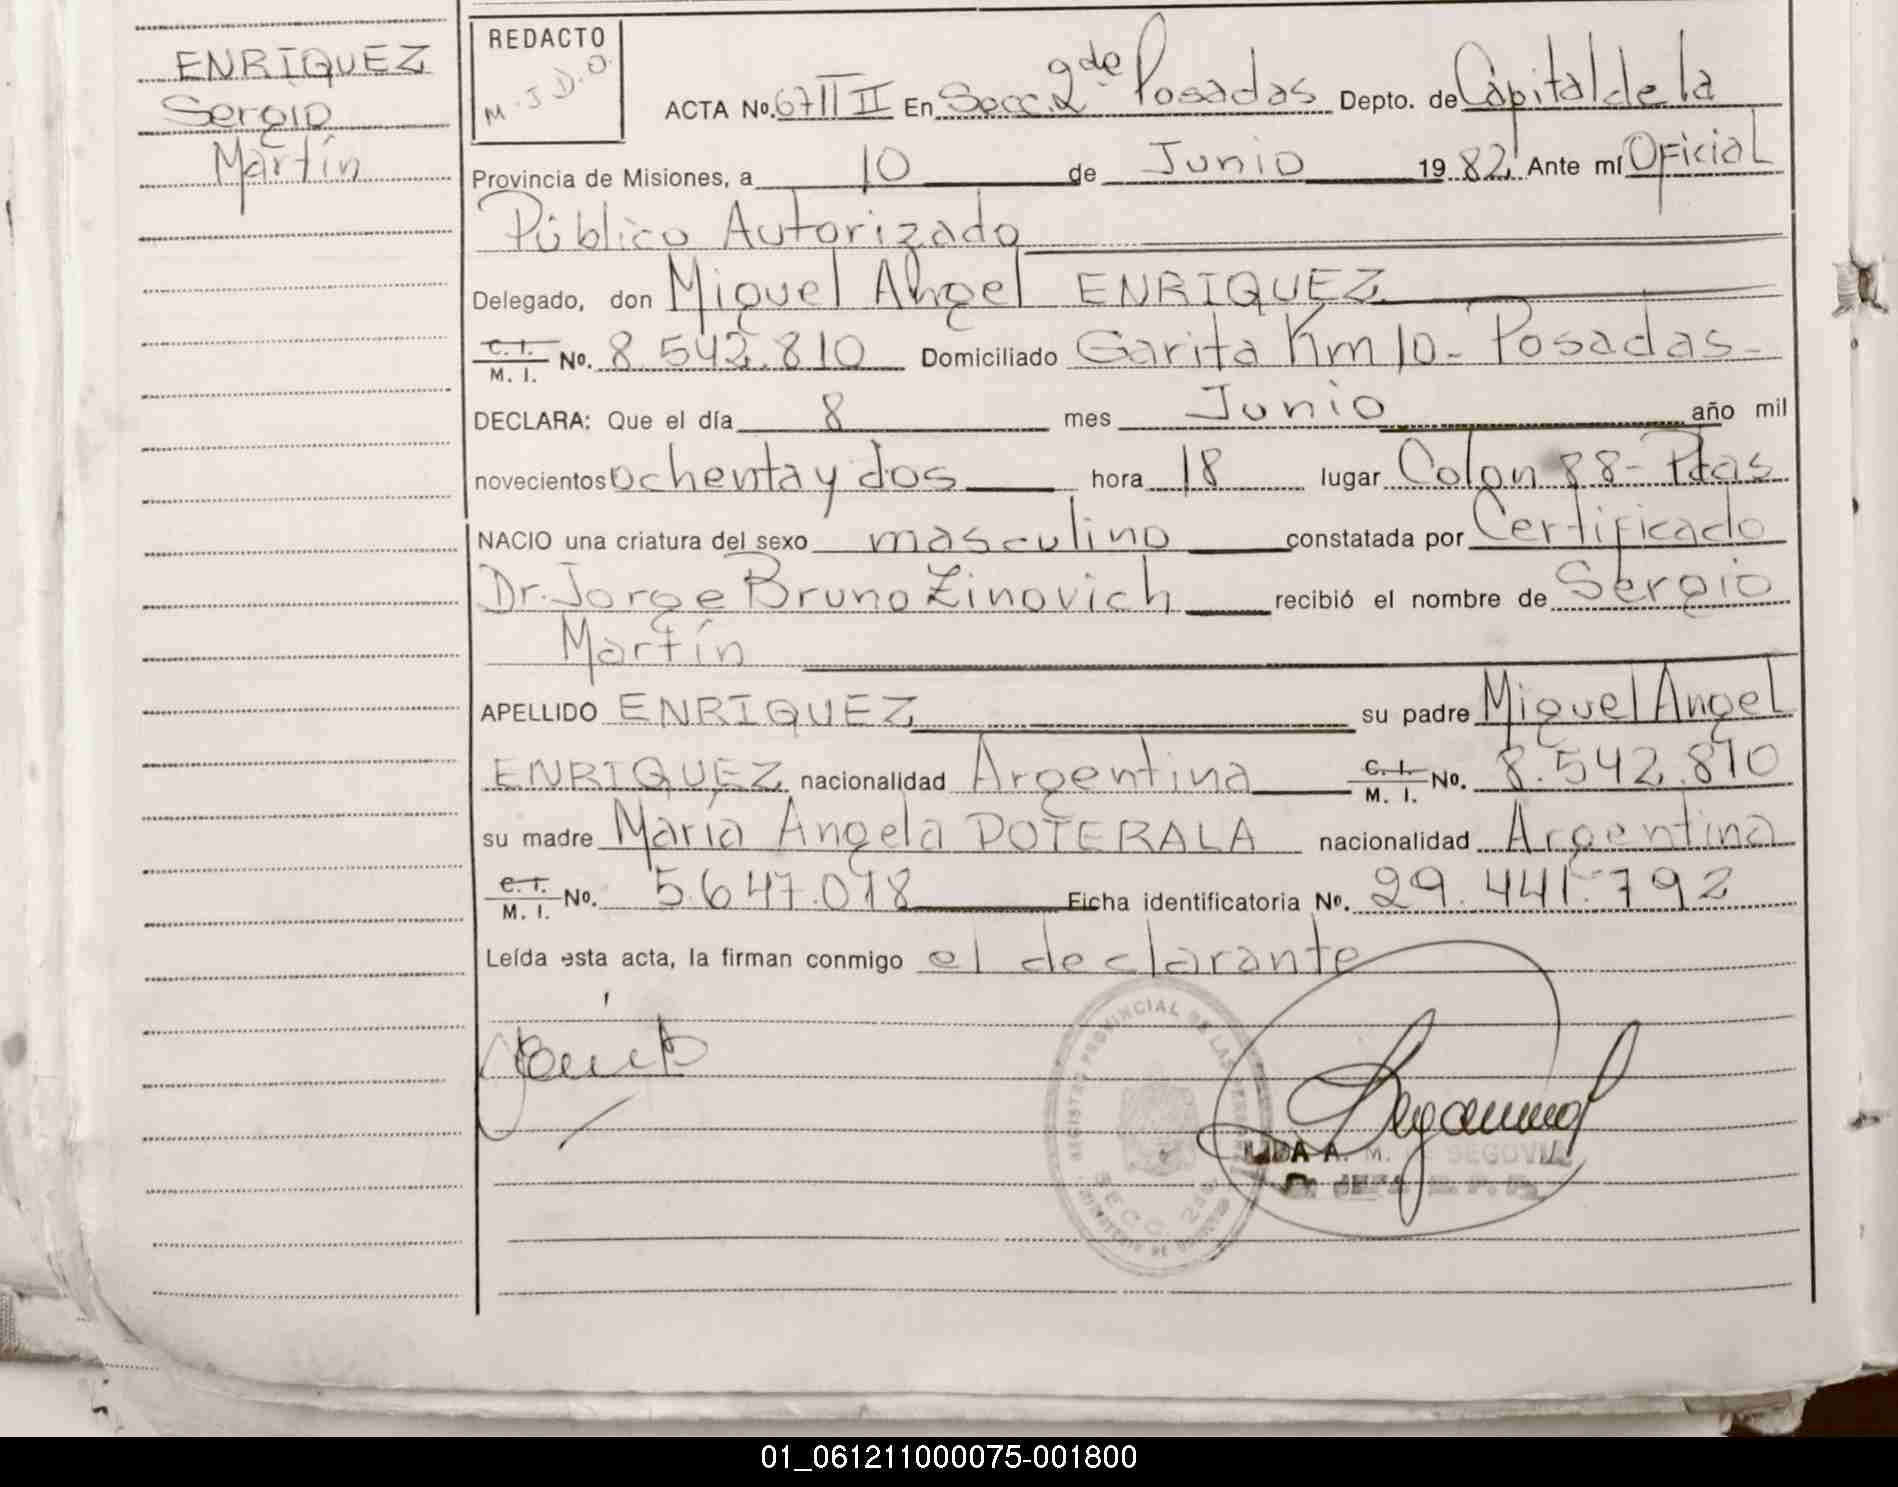 ENRIQUEZ
Sergio
Martín
REDACTO
M.J.D.O.
ACTA No. 67 TII En Secc. 2da de Posadas Depto. de Capital de la
Provincia de Misiones, a 10 de Junio 1982, Ante mí Oficial
Público Autorizado
Delegado, don Miguel Angel ENRIQUEZ
C. I. M. I. No. 8.542.810 Domiciliado Garita Km 10 - Posadas -
DECLARA: Que el día 8 mes Junio año mil
novecientos ochenta y dos hora 18 lugar Colon 88 - Pdas
NACIO una criatura del sexo masculino constatada por Certificado
Dr. Jorge Bruno Zinovich recibió el nombre de Sergio
Martín
APELLIDO ENRIQUEZ su padre Miguel Angel
ENRIQUEZ nacionalidad Argentina C. I. M. I. No. 8.542.810
su madre María Angela POTERALA nacionalidad Argentina
C. I. M. I. No. 5.647.078 Ficha identificatoria No. 29.441.792
Leída esta acta, la firman conmigo el declarante
REGISTRO PROVINCIAL DE LAS PERSONAS
SECC. 2da
A. M. DE SEGOVIA
JEFA R. P. P.
01_061211000075-001800